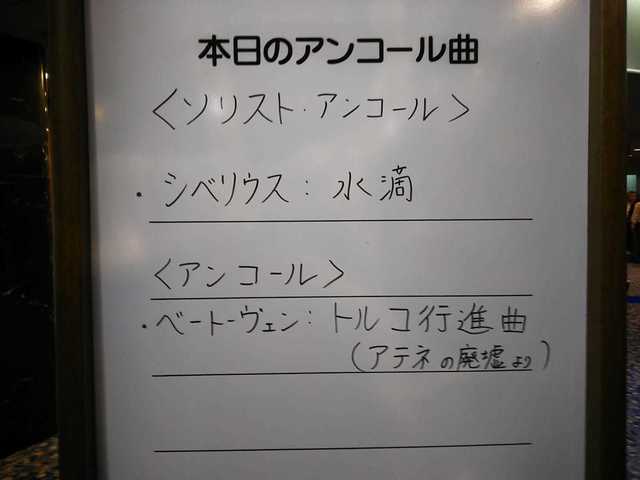 本日のアンコール曲
〈ソリスト・アンコール〉
・シベリウス：水滴
〈アンコール〉
・ベートーヴェン：トルコ行進曲
（アテネの廃墟より）